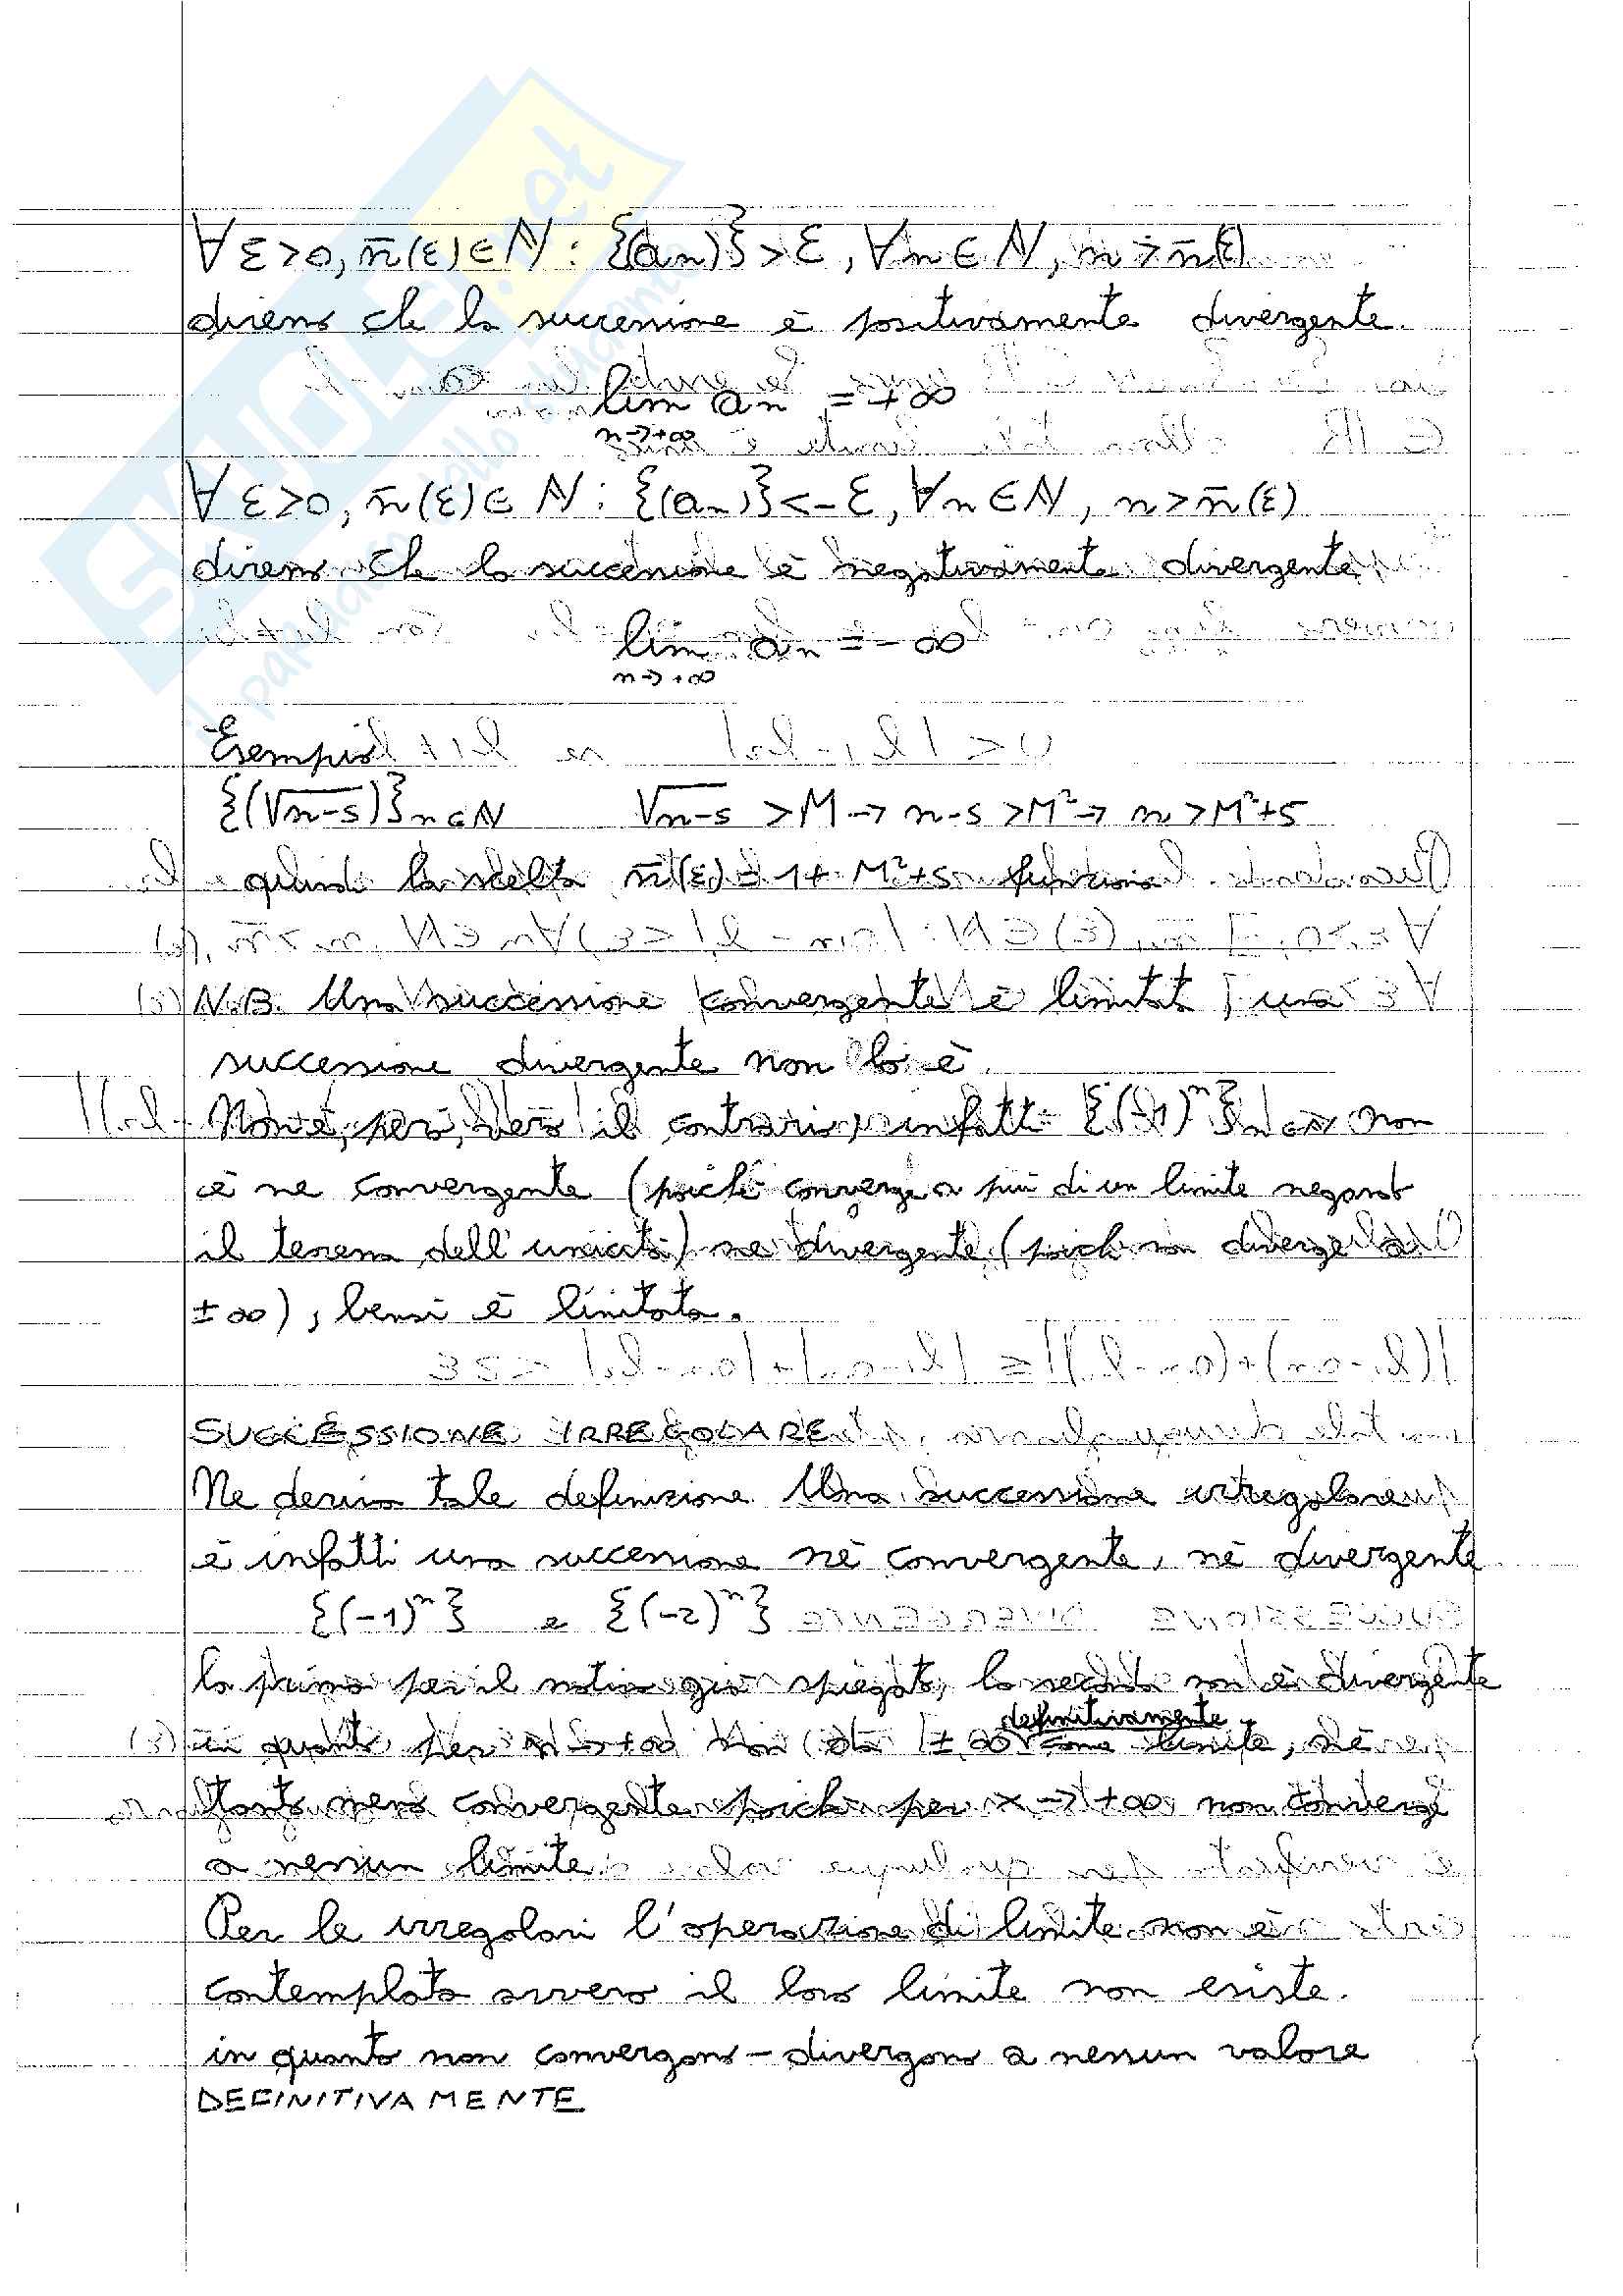 ∀ ε>0, n̄(ε)∈ℕ : {(an)}>ε, ∀n∈ℕ, n>n̄(ε)
diremo che la successione è positivamente divergente.
lim an = +∞
n→+∞
∀ ε>0, n̄(ε)∈ℕ : {(an)}<-ε, ∀n∈ℕ, n>n̄(ε)
diremo che la successione è negativamente divergente
lim an = -∞
n→+∞
Esempio
{(√n-5)}n∈ℕ √n-5 >M → n-5 >M² → n >M²+5
quindi la scelta n̄(ε) = 1+ M²+5 funziona
N.B. Una successione convergente è limitata, una
successione divergente non lo è.
Non è, però, vero il contrario, infatti {(-1)ⁿ}n∈ℕ non
è ne convergente (poichè converge a più di un limite negando
il teorema dell'unicità) ne divergente (poichè non diverge a
±∞), bensì è limitata.
SUCCESSIONE IRREGOLARE
Ne deriva tale definizione. Una successione irregolare
è infatti una successione nè convergente, nè divergente
{(-1)ⁿ} e {(-2)ⁿ}
la prima per il motivo già spiegato, la seconda non è divergente
definitivamente
in quanto per n→+∞ non dà ±∞ come limite, nè
tanto meno convergente poichè per x→+∞ non converge
a nessun limite
Per le irregolari l'operazione di limite non è
contemplata ovvero il loro limite non esiste.
in quanto non convergono-divergono a nessun valore
DEFINITIVAMENTE
SKUOLA.net
il paradiso dello studente